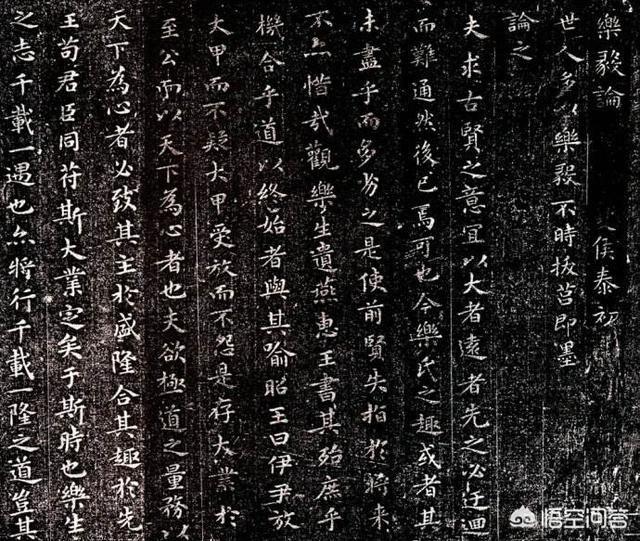 樂毅論 侯泰初
世人多以樂毅不時拔莒即墨
論之
夫求古賢之意宜以大者遠者先之必迂迴
而難通然後已焉可也今樂氏之趣或者其
未盡乎而多劣之是使前賢失指於將來
不亦惜哉觀樂生遺燕惠王書其殆庶乎
機合乎道以終始者與其喻昭王曰伊尹放
大甲而不疑大甲受放而不怨是存大業於
至公而以天下為心者也夫欲極道之量務以
天下為心者必致其主於盛隆合其趣於先
王苟君臣同苻斯大業定矣于斯時也樂生
之志千載一遇也亦將行千載一隆之道豈其
悟空问答